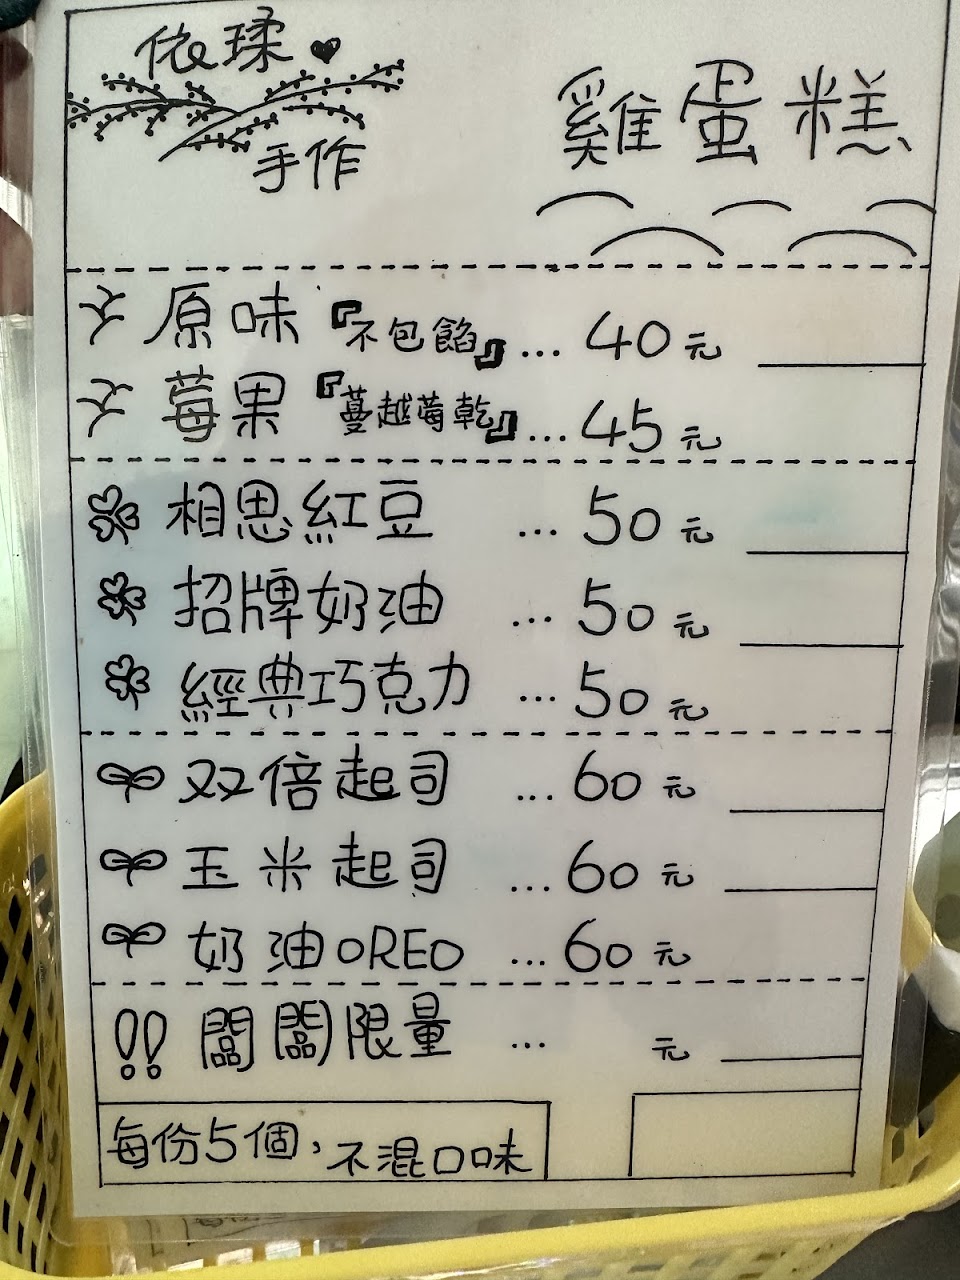 依瑈
手作
雞蛋糕
原味『不包餡』...40元
莓果『蔓越莓乾』...45元
相思紅豆...50元
招牌奶油...50元
經典巧克力...50元
双倍起司...60元
玉米起司...60元
奶油OREO...60元
!!闆闆限量...元
每份5個，不混口味